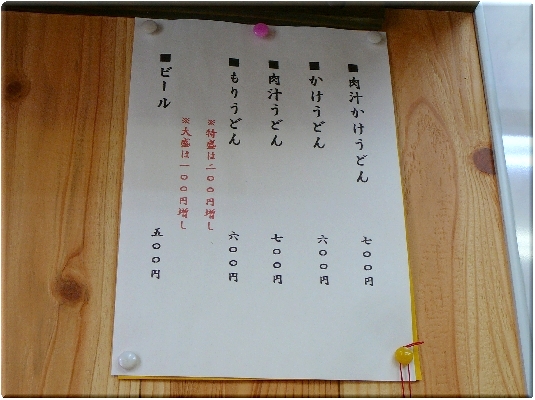 ■肉汁かけうどん 七〇〇円
■かけうどん 六〇〇円
■肉汁うどん 七〇〇円
■もりうどん 六〇〇円
※特盛は二〇〇円増し
※大盛は一〇〇円増し
■ビール 五〇〇円